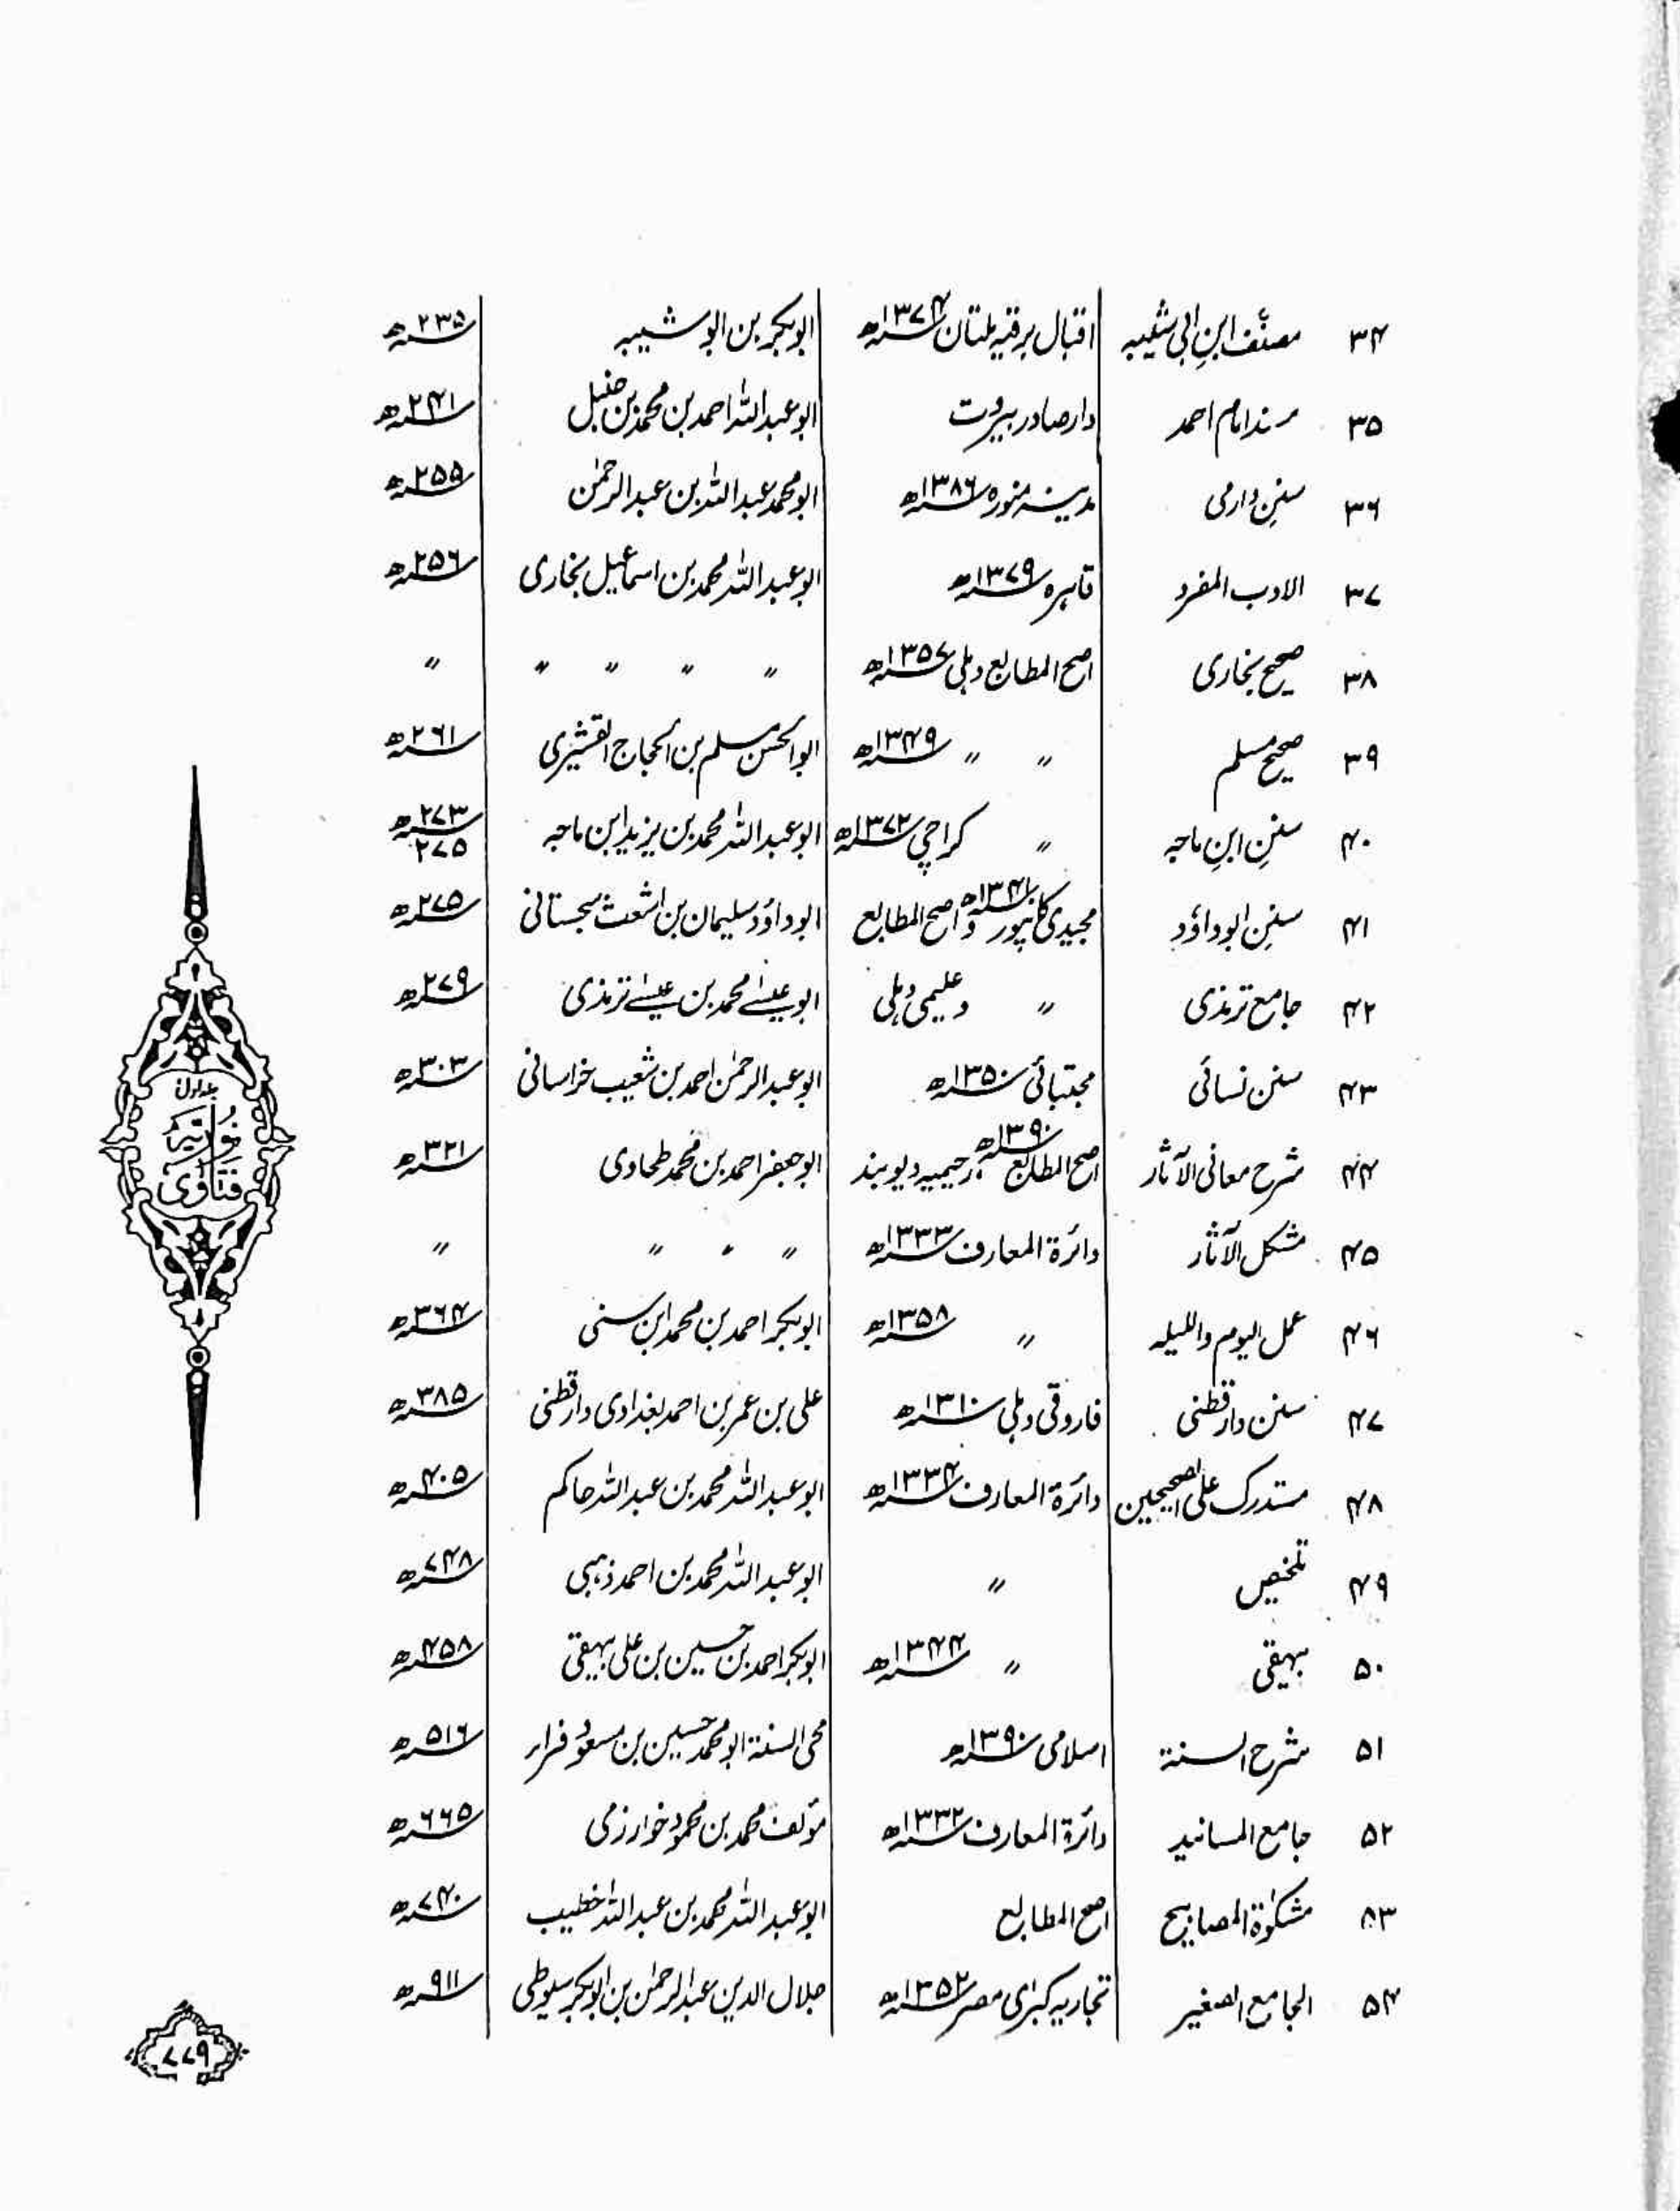 ۳۴ مصنّف ابنِ ابی شیبہ اقبال برقیہ ملتان ۱۳۷۴ھ ابوبکر بن ابو شیبہ ۲۳۵ھ
۳۵ مسند امام احمد دار صادر بیروت ابوعبداللہ احمد بن محمد بن حنبل ۲۴۱ھ
۳۶ سننِ دارمی مدینہ منورہ ۱۳۸۶ھ ابومحمد عبداللہ بن عبدالرحمٰن ۲۵۵ھ
۳۷ الادب المفرد قاہرہ ۱۳۷۹ھ ابوعبداللہ محمد بن اسماعیل بخاری ۲۵۶ھ
۳۸ صحیح بخاری اصح المطابع دہلی ۱۳۵۷ھ " " " " "
۳۹ صحیح مسلم " " ۱۳۴۹ھ ابوالحسن مسلم بن الحجاج القشیری ۲۶۱ھ
۴۰ سننِ ابنِ ماجہ " کراچی ۱۳۷۲ھ ابوعبداللہ محمد بن یزید ابن ماجہ ۲۷۳ھ ۲۷۵
۴۱ سننِ ابوداؤد مجیدی کانپور ۱۳۴۱ھ و اصح المطابع ابوداؤد سلیمان بن اشعث سجستانی ۲۷۵ھ
۴۲ جامع ترمذی " و علیمی دہلی ابوعیسٰے محمد بن عیسٰے ترمذی ۲۷۹ھ
۴۳ سنن نسائی مجتبائی ۱۳۵۰ھ ابوعبدالرحمٰن احمد بن شعیب خراسانی ۳۰۳ھ
۴۴ شرح معانی الآثار اصح المطابع ۱۳۹۰ھ رحیمیہ دیوبند ابوجعفر احمد بن محمد طحاوی ۳۲۱ھ
۴۵ مشکل الآثار دائرۃ المعارف ۱۳۳۳ھ " " " "
۴۶ عمل الیوم واللیلہ " ۱۳۵۸ھ ابوبکر احمد بن محمد ابن سنی ۳۶۴ھ
۴۷ سنن دارقطنی فاروقی دہلی ۱۳۱۰ھ علی بن عمر بن احمد بغدادی دارقطنی ۳۸۵ھ
۴۸ مستدرک علی الصحیحین دائرۃ المعارف ۱۳۳۴ھ ابوعبداللہ محمد بن عبداللہ حاکم ۴۰۵ھ
۴۹ تلخیص " ابوعبداللہ محمد بن احمد ذہبی ۷۴۸ھ
۵۰ بیہقی " ۱۳۴۴ھ ابوبکر احمد بن حسین بن علی بیہقی ۴۵۸ھ
۵۱ شرح السنۃ اسلامی ۱۳۹۰ھ محی السنۃ ابومحمد حسین بن مسعود فرار ۵۱۶ھ
۵۲ جامع المسانید دائرۃ المعارف ۱۳۳۲ھ مؤلف محمد بن محمود خوارزمی ۶۶۵ھ
۵۳ مشکوٰۃ المصابیح اصح المطابع ابوعبداللہ محمد بن عبداللہ خطیب ۷۴۰ھ
۵۴ الجامع الصغیر تجاریہ کبرٰی مصر ۱۳۵۲ھ جلال الدین عبدالرحمٰن بن ابوبکر سیوطی ۹۱۱ھ
جلد اول
نوریہ
فتاوٰی
۷۷۹